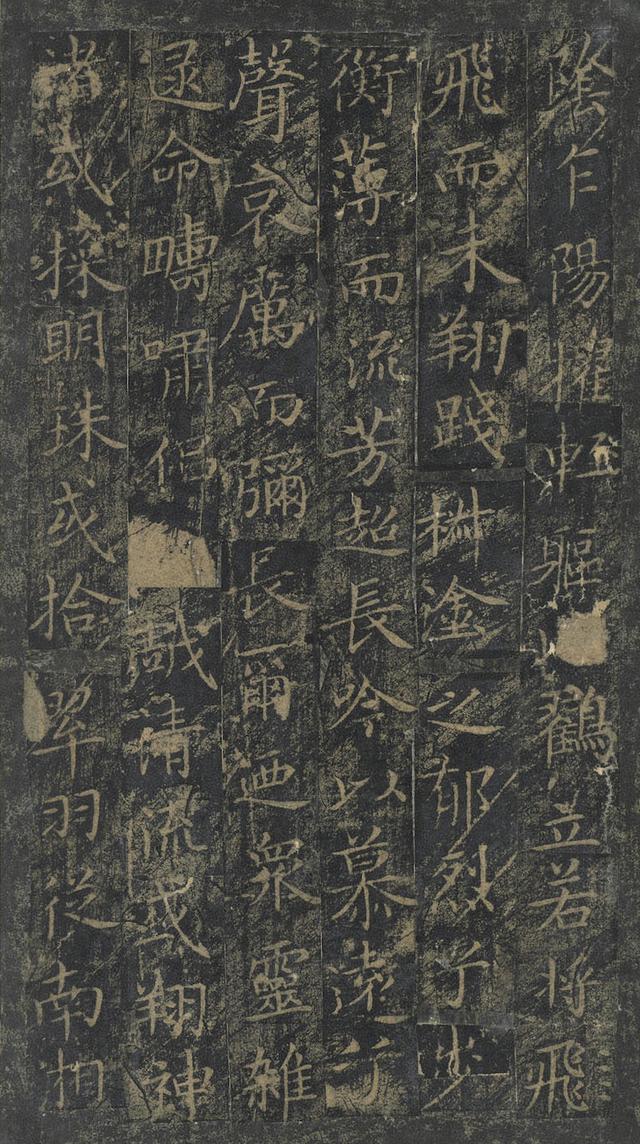 陰乍陽擢輕軀以鸖立若將飛
飛而未翔踐椒塗之郁烈兮步
衡薄而流芳超長吟以慕遠兮
聲哀厲而彌長爾迺眾靈雜
逯命疇嘯侶戲清流或翔神
渚或採明珠或拾翠羽從南湘